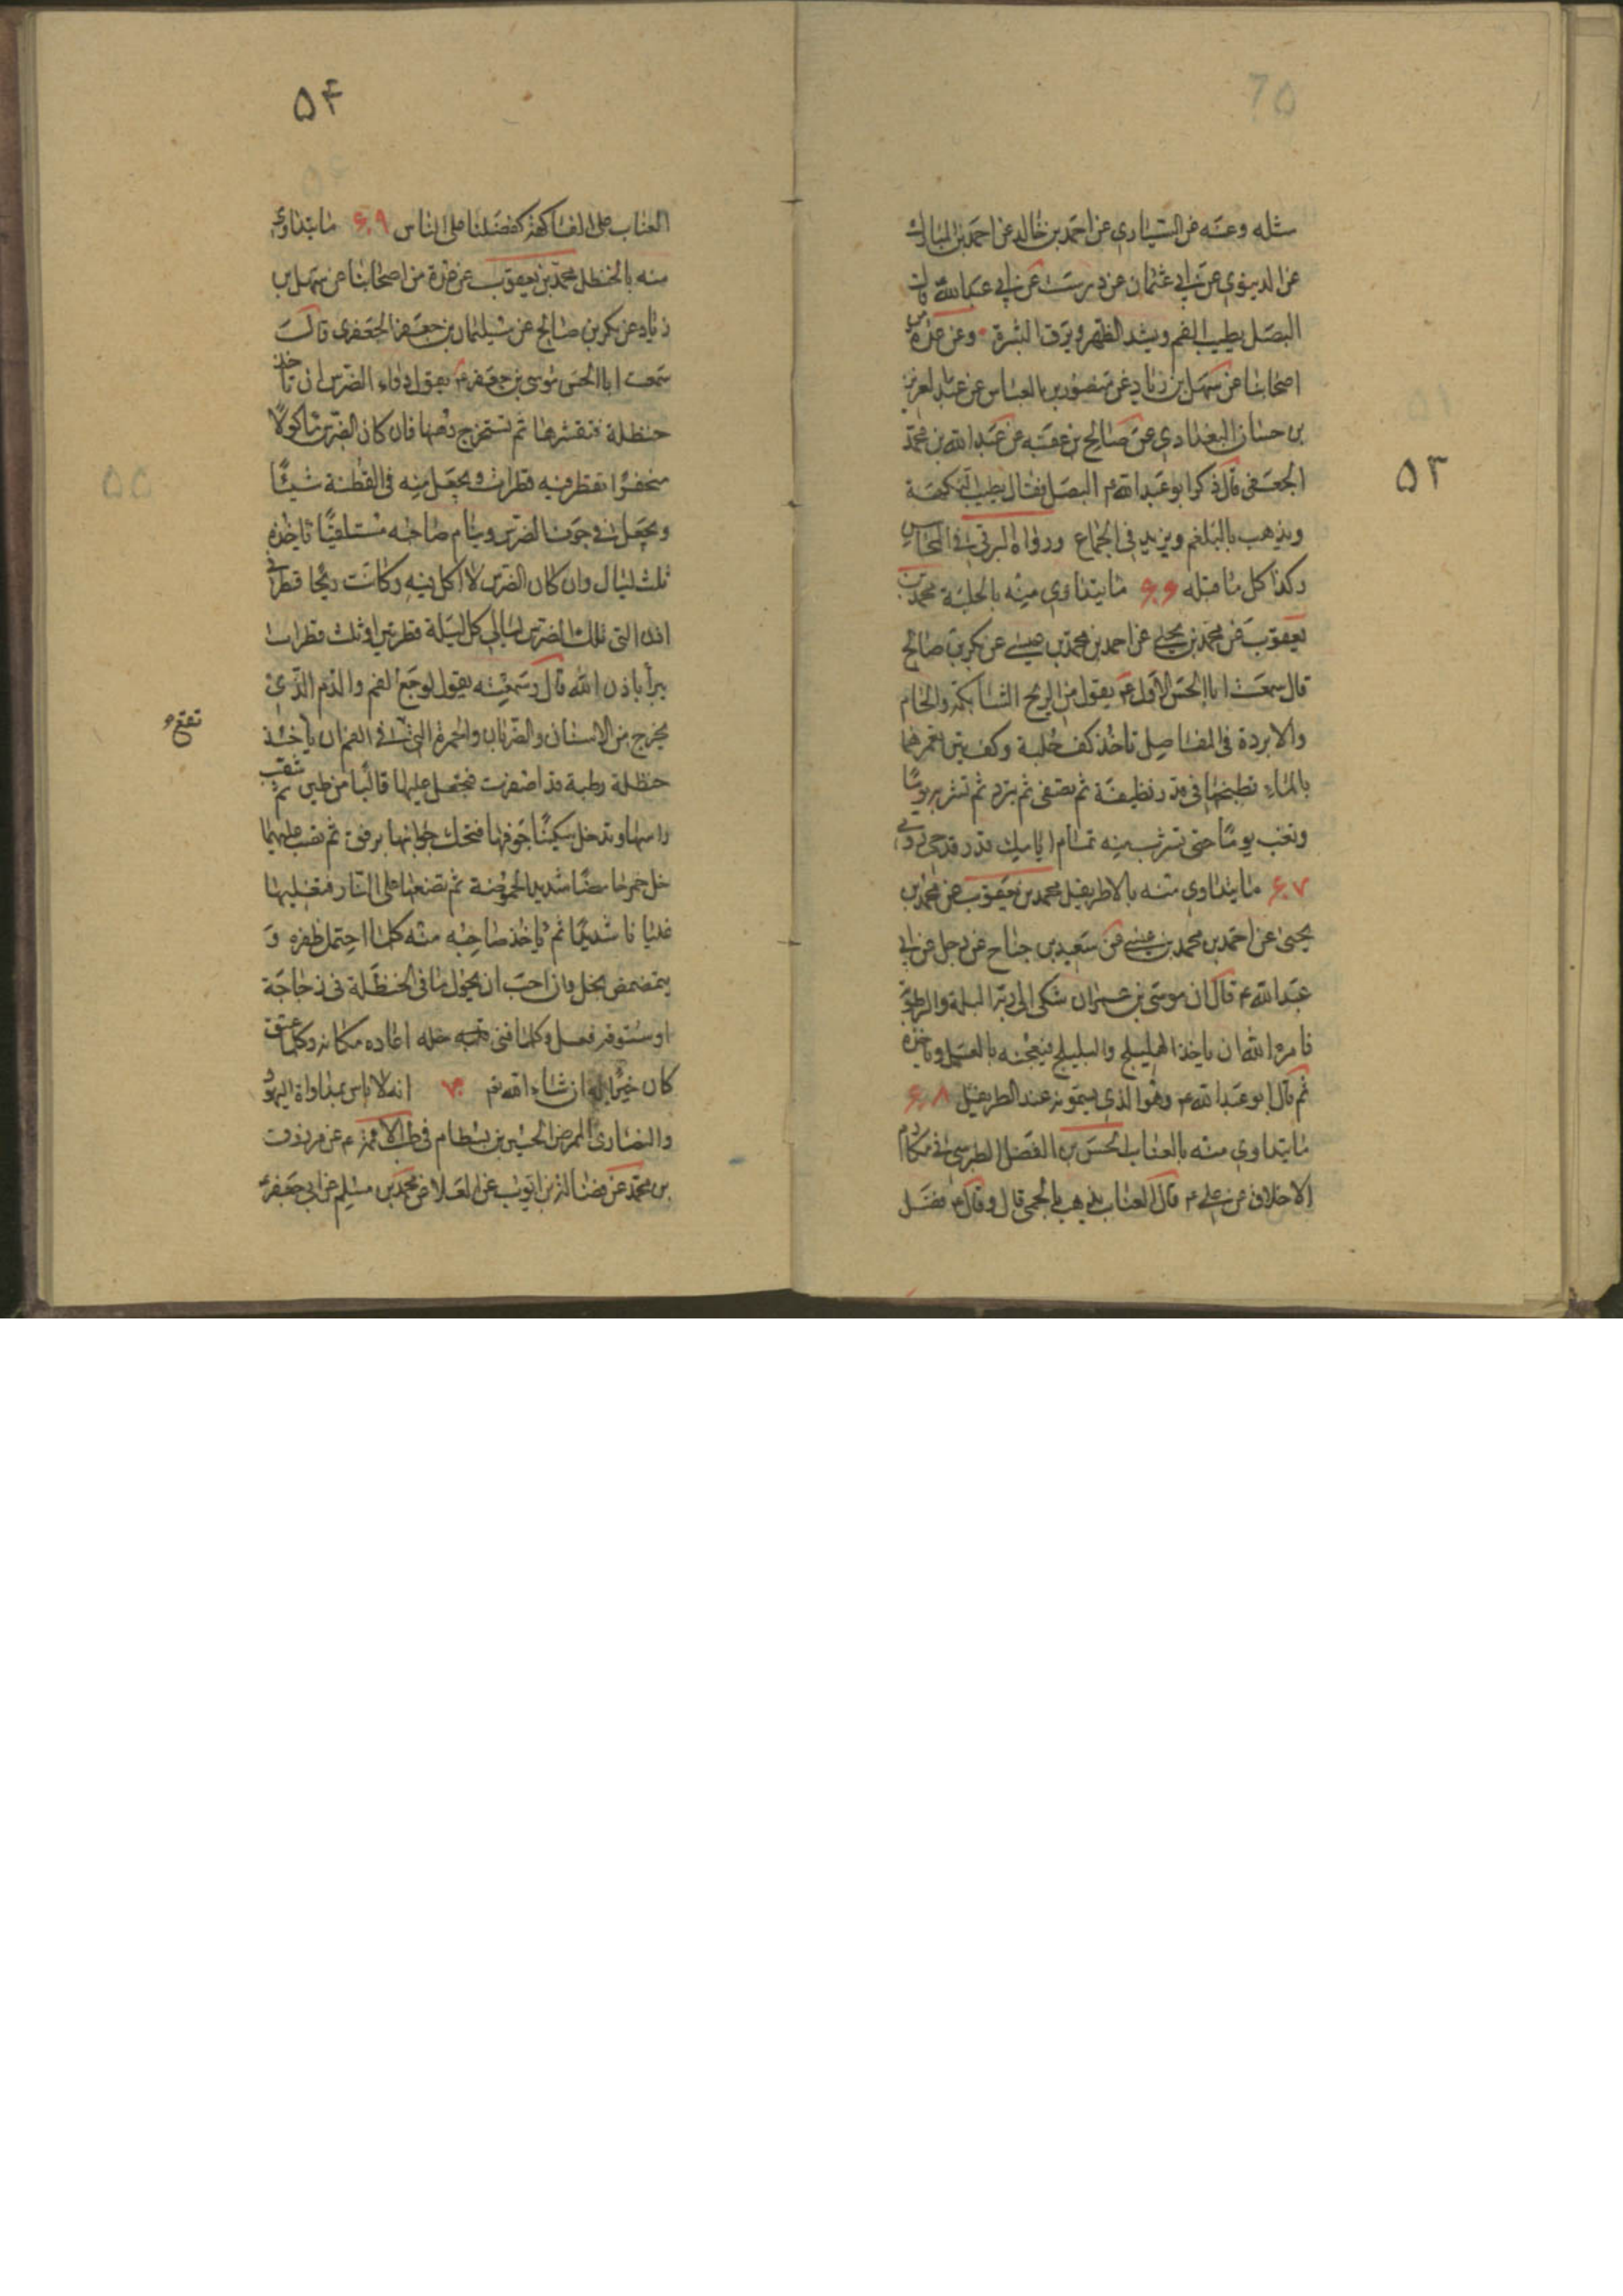 ۵۳
مثله وعنه عن السيارى عن احمد بن خالد عن احمد بن المبارك
عن الدينورى عن ابى عثمان عن درست عن ابى عبد الله ع قال
البصل يطيب الفم ويشد الظهر ويرق البشرة وعن عدة من
اصحابنا عن سهل بن زياد عن منصور بن العباس عن عبد العزيز
بن حسان البغدادى عن صالح بن عقبه عن عبد الله بن محمد
الجعفى قال ذكر ابو عبد الله ع البصل فقال يطيب النكهة
ويذهب بالبلغم ويزيد فى الجماع ورواه البرقى فى المحاسن
وكذا كل ما قبله ۶۶ ما يتداوى منه بالحلبة محمد بن
يعقوب عن محمد بن يحيى عن احمد بن محمد بن عيسى عن بكر بن صالح
قال سمعت ابا الحسن الاول ع يقول من الريح الشابكة والحام
والابردة فى المفاصل تاخذ كف حلبة وكف تين تغمرهما
بالماء تطبخهما فى قدر نظيفة ثم تصفى ثم تبرد ثم تشربه يوما
وتغب يوما حتى تشرب منه تمام ايامك قدر قدح روى
۶۷ ما يتداوى منه بالاطريفل محمد بن يعقوب عن محمد بن
يحيى عن احمد بن محمد بن عيسى عن سعيد بن جناح عن رجل عن ابى
عبد الله ع قال ان موسى بن عمران شكى الى ربه البلة والرطوبة
فامره الله ان ياخذ الهليلج والبليلج فيعجنه بالعسل وياخذه
ثم قال ابو عبد الله ع وهو الذى يسمونه عند الطريفل ۶۸
ما يتداوى منه بالعناب الحسن بن الفضل الطبرسى فى مكارم
الاخلاق عن على ع قال العناب يذهب بالحمى قال وقال ع فضل
۵۴
العناب على الفاكهة كفضلنا على الناس ۶۹ ما يتداوى
منه بالحنظل محمد بن يعقوب عن عدة من اصحابنا عن سهل بن
زياد عن بكر بن صالح عن سليمان بن جعفر الجعفرى قال
سمعت ابا الحسن موسى بن جعفر ع يقول دواء الضرس ان تاخذ
حنظلة فتقشرها ثم تستخرج دهنها فان كان الضرس ماكولا
منحفرا تقطر فيه قطرات ويجعل منه فى القطنة شيئا
ويجعل فى جوف الضرس وينام صاحبه مستلقيا ياخذه
ثلث ليال وان كان الضرس لا اكل فيه وكانت ريحا قطر فى
اذن التى تلك الضرس ليالى كل ليلة قطرتين او ثلث قطرات
يبرأ باذن الله قال وسمعته يقول لوجع الفم والدم الذى
يخرج من الاسنان والضربان والحمرة التى تقع فى الفم ان ياخذ
حنظلة رطبة قد اصفرت فيجعل عليها قالبا من طين ثم يثقب
راسها وتدخل سكينا جوفها فتحك جوانبها برفق ثم تصب عليها
خل خمر حامضا شديد الحموضة ثم تضعها على النار فتغليها
غليانا شديدا ثم ياخذ صاحبه منه كلما احتمل ظفره و
يتمضمض بخل وان احب ان يحول ما فى الحنظلة فى زجاجة
او بستوقة فعل وكلما فنى خله اعاده مكانه وكلما عتق
كان خيرا له ان شاء الله تع ۷۰ انه لا باس بمداواة اليهود
والنصارى للمرض الحسين بن بسطام فى طب الائمة ع عن مرزوق
بن محمد عن فضالة بن ايوب عن العلا عن محمد بن مسلم عن ابى جعفر ع
تقع
۵۵